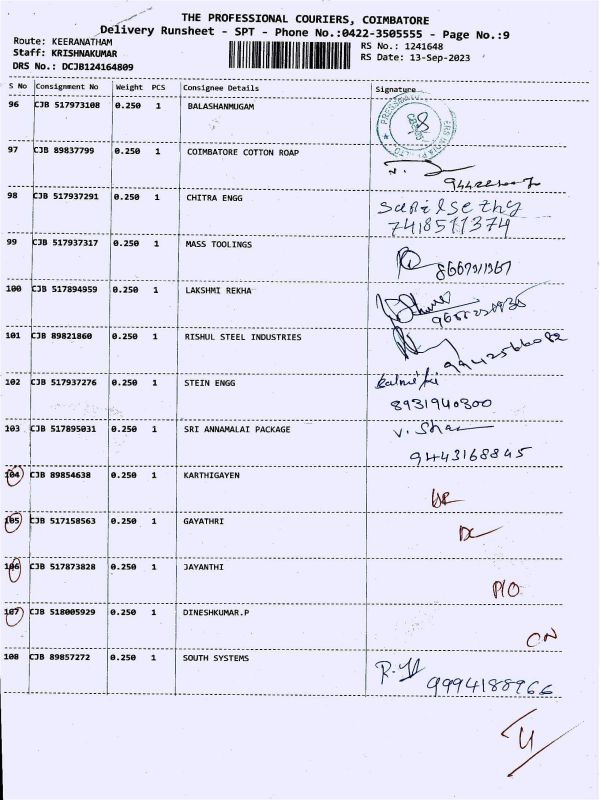 THE PROFESSIONAL COURIERS, COIMBATORE
Delivery Runsheet - SPT - Phone No.:0422-3505555 - Page No.:9
Route: KEERANATHAM
RS No.: 1241648
Staff: KRISHNAKUMAR
RS Date: 13-Sep-2023
DRS No.: DCJB124164809
S No Consignment No Weight PCS Consignee Details Signature
96 CJB 517973108 0.250 1 BALASHANMUGAM
97 CJB 89837799 0.250 1 COIMBATORE COTTON ROAP
98 CJB 517937291 0.250 1 CHITRA ENGG
7418511374
99 CJB 517937317 0.250 1 MASS TOOLINGS
100 CJB 517894959 0.250 1 LAKSHMI REKHA
101 CJB 89821860 0.250 1 RISHUL STEEL INDUSTRIES
9942566082
102 CJB 517937276 0.250 1 STEIN ENGG
8931940800
103 CJB 517895031 0.250 1 SRI ANNAMALAI PACKAGE
9443168845
104 CJB 89854638 0.250 1 KARTHIGAYEN
105 CJB 517158563 0.250 1 GAYATHRI
DC
106 CJB 517873828 0.250 1 JAYANTHI
P/O
107 CJB 518005929 0.250 1 DINESHKUMAR.P
ON
108 CJB 89857272 0.250 1 SOUTH SYSTEMS
9994188966